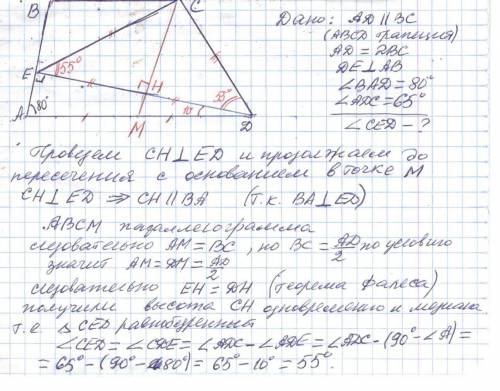 B
C
Дано: AD ∥ BC
(ABCD трапеция)
AD = 2BC
DE ⊥ AB
∠BAD = 80°
∠ADC = 65°
∠CED – ?
E
55°
H
55°
A
80°
M
10
D
Проведем CH ⊥ ED и продолжаем до
пересечения с основанием в точке M
CH ⊥ ED ⇒ CH ∥ BA (т.к. BA ⊥ ED)
ABCM параллелограмма
следовательно AM = BC, но BC = AD/2 по условию
значит AM = DM = AD/2
следовательно EH = DH (теорема Фалеса)
получили высота CH одновременно и медиана
т.е △CED равнобедренный
∠CED = ∠CDE = ∠ADC – ∠ADE = ∠ADC – (90° – ∠A) =
= 65° – (90° – 80°) = 65° – 10° = 55°.